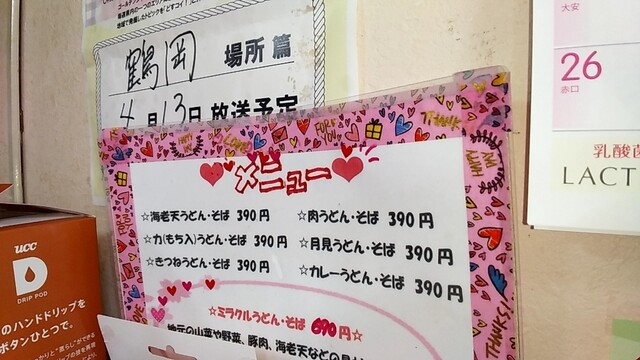 鶴岡 場所 篇
4月13日 放送予定
メニュー
☆海老天うどん・そば 390円
☆力(もち入)うどん・そば 390円
☆きつねうどん・そば 390円
☆肉うどん・そば 390円
☆月見うどん・そば 390円
☆カレーうどん・そば 390円
☆ミラクルうどん・そば 690円☆
地元の山菜や野菜、豚肉、海老天などの具
大安
26
赤口
乳酸菌
LACT
UCC
D
DRIP POD
のハンドドリップを
ボタンひとつで。